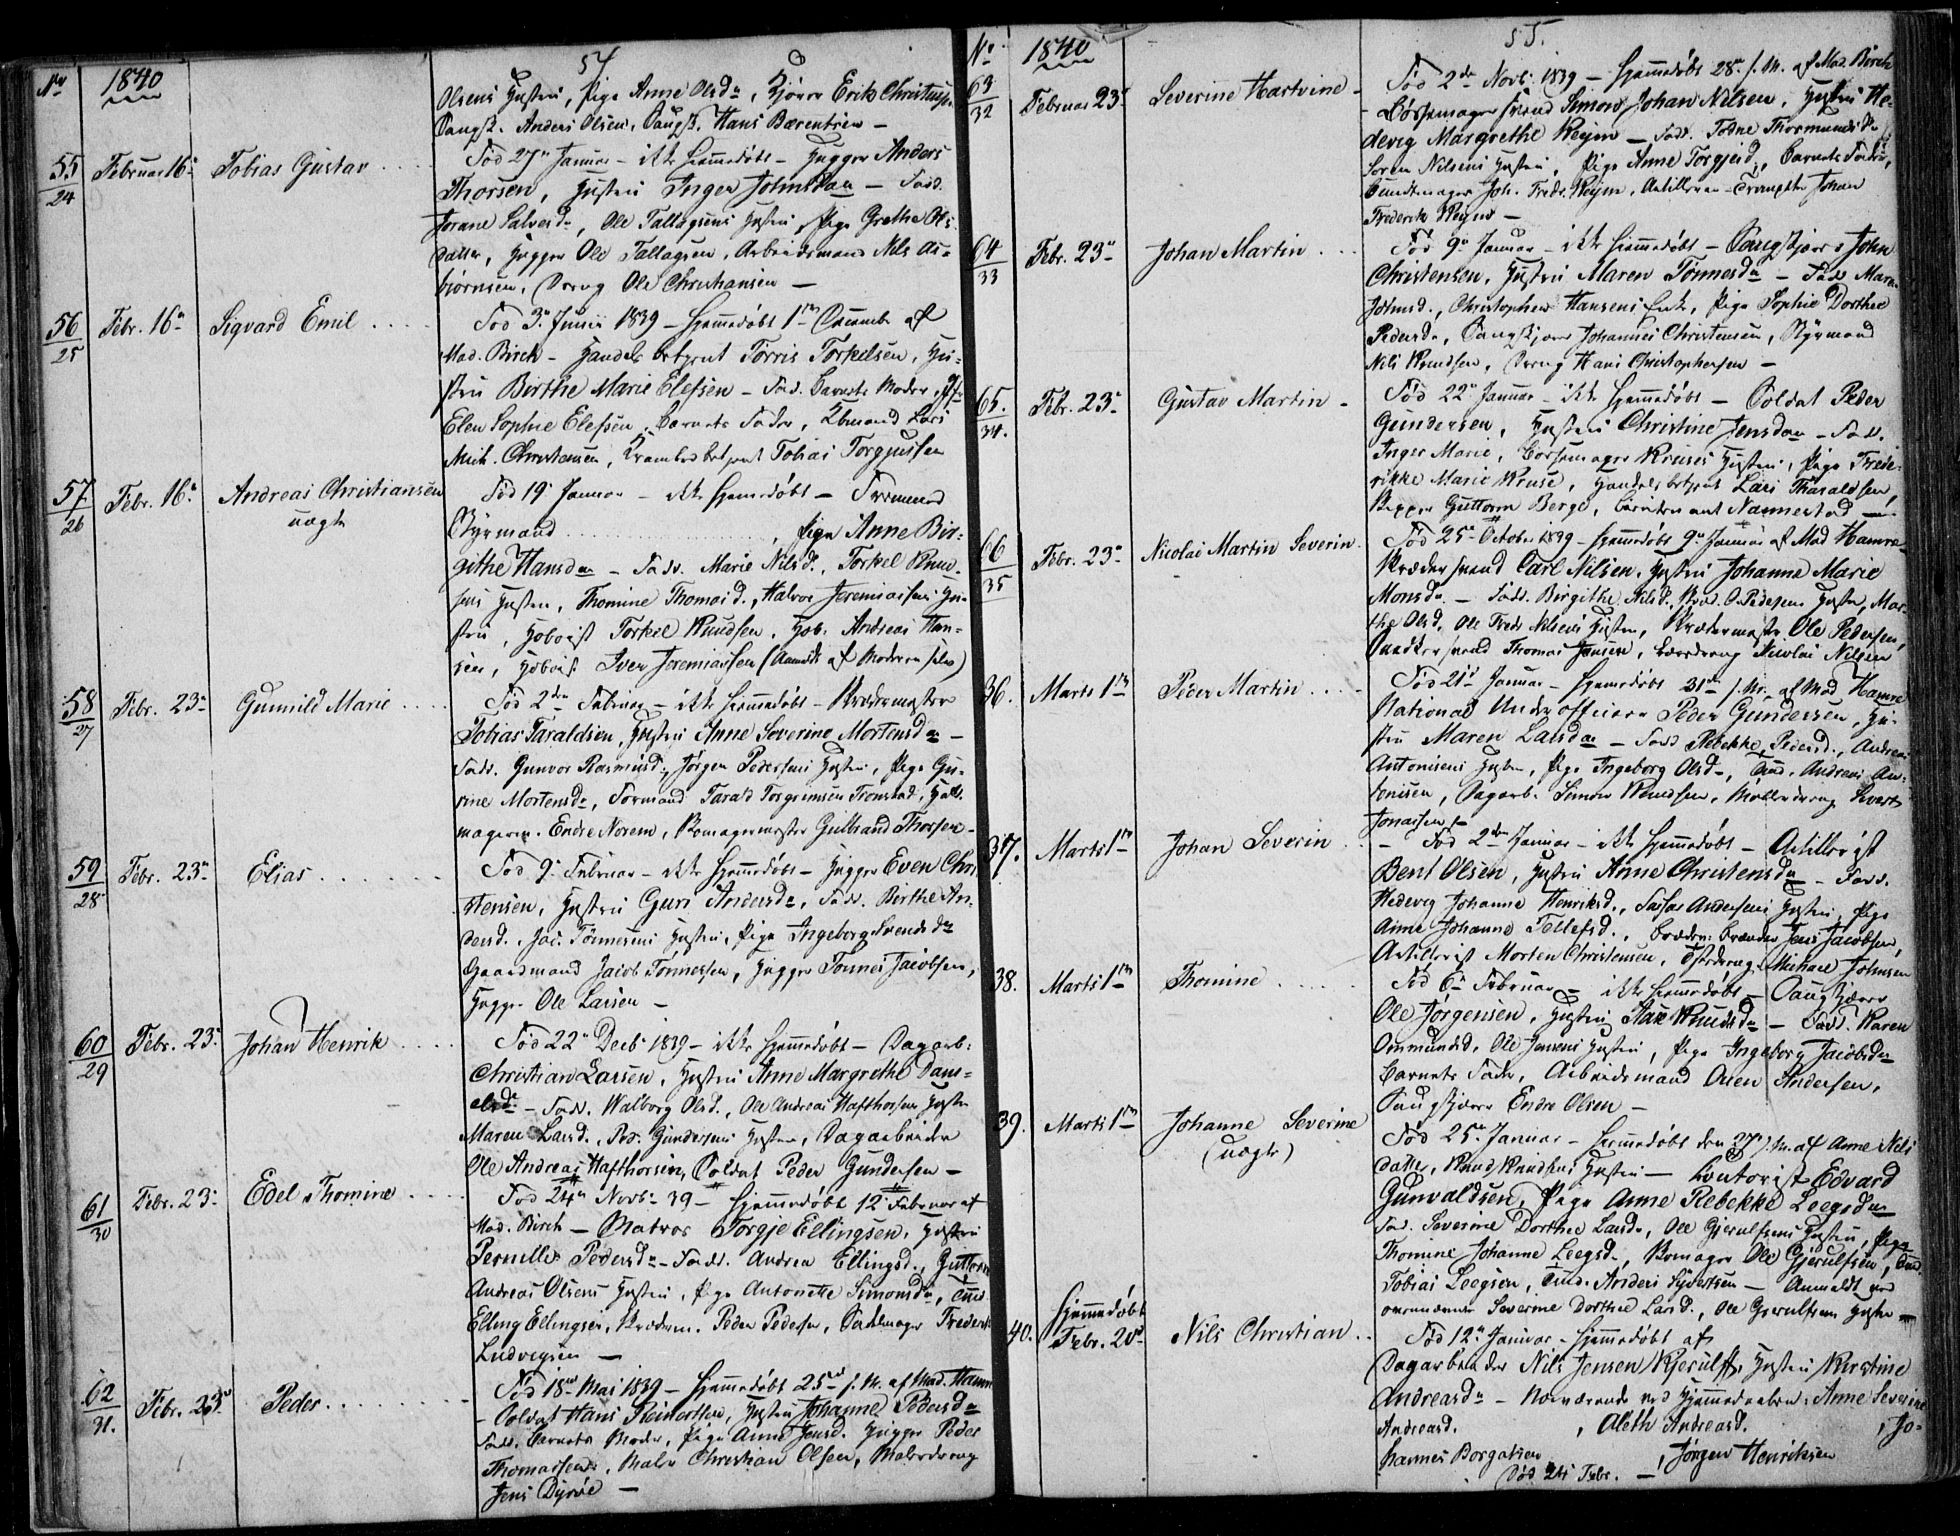 54
No 1840
Olsens Hustru, Pige Anne Olsdr, Kjører Erik Christens.
Anders Olsen, Hans Bærentsen —
55/24 Februar 16 Tobias Gustav . . . Fød 27 Januar — ikke hjemmedøbt — Hugger Anders
Thorsen, Hustru Inger Johnsdr — Fad.
Jorane Salvesdr, Ole Tallagsens Hustru, Pige Grethe Ols
datter, Hugger Ole Tallagsen, Arbeidsmand Nils As=
biørnsen, Dreng Ole Christiansen —
56/25 Febr. 16 Sigvard Emil . . . . Fød 3 Junii 1839 — Hjemmedøbt 1 December af
Mad. Birch — Handels betjent Torris Torkelsen, Hu=
stru Birthe Marie Elefsen — Fad. Barnets Moder,
Elen Sophie Elefsen, Barnets Fader, Lars
Mich. Christensen, betjent Tobias Torgjussen
57/26 Febr. 16 Andreas Christiansen Fød 19 Januar — ikke hjemmedøbt —
uægte Styrmand . . . . , Pige Anne Bir=
githe Hansdr — Fad. Marie Nilsd., Torkel Knud=
sens Hustru, Thomine Thomasd., Halvor Jeremiasens Hu=
stru, Hoboist Torkel Knudsen, Hob. Andreas Han=
sen, Hoboist Iver Jeremiassen (Anmeldt af Moderen selv)
58/27 Febr. 23 Gunnild Marie . . . . Fød 2 Februar — ikke hjemmedøbt — Skrædermester
Tobias Taraldsen, Hustru Anne Severine Mortensdr —
Fad. Gunvor Rasmusd., Jørgen Pedersens Hustru, Pige Gu=
rine Mortensdr, Formand Tarald Torgrimsen Tronstad,
magersv. Endre Norem, Skomagermester Gulbrand Thorsen —
59/28 Febr. 23 Elias . . . . . . Fød 9 Februar — ikke hjemmedøbt — Hugger Even Chri
stensen, Hustru Guri Andersdr, Fad. Birthe An=
dersd., Jac. Tønnesens Hustru, Pige Ingeborg Svendsdr
Gaardmand Jacob Tønnessen, Hugger Tønnes Jacobsen,
Hugger Ole Larsen —
60/29 Febr. 23 Johan Henrik . . . . Fød 22 Decb. 1839 — ikke hjemmedøbt — Dagarb.
Christian Larsen, Hustru Anne Margrethe Dani=
elsdr — Fad. Walborg Olsd., Ole Andreas Hafthorsens Hustru
Maren Larsd., Ped. Gundersens Hustru, Dagarbeider
Ole Andreas Hafthorsen, Soldat Peder Gundersen —
61/30 Febr. 23 Edel Thomine . . . . Fød 24 Novb. 39 — Hjemmedøbt 12 Februar af
Mad. Birch — Matros Torgje Ellingsen, Hustru
Pernille Pedersdr — Fad. Andrea Ellingsd., Guttorm
Andreas Olsens Hustru, Pige Antonette Simonsdr,
Elling Ellingsen, Skræderm. Peder Pedersen, Sadelmager Frederik
Ludvigsen —
62/31. Febr. 23 Peder . . . . . . . . Fød 18 Mai 1839 — Hjemmedøbt 25 s. M. af Mad. Hamre
— Soldat Hans Reinertsen, Hustru Johanne Pedersdr
Fad. Barnets Moder, Pige Anne Jensd. Hugger Peder
Thomassen, Maler Christian Olsen, Malerdreng
Jens Dyrøe —
55.
No 1840
63/32 Februar 23 Severine Hartvine — Fød 2 Novb. 1839 — Hjemmedøbt 28 s. M. af Mad. Birch
— Børsemager svend Simon Johan Nilsen, Hustru He=
devig Margrethe Reym — Fad. Todne Thormundsdr
Søren Nilsens Hustru, Pige Anne Torgjersd., Barnets Fader,
Bundtmager Joh. Fredr. Reym, Artilleri — Trompeter Johan
Frederik Reym —
64/33 Febr. 23 Johan Martin . . . Fød 9 Januar — ikke hjemmedøbt — John
Christensen, Hustru Maren Tønnesdr — Fad. Maren
Johnsd., Christopher Hansens Enke, Pige Sophie Dorthee
Pedersdr, Johannes Christensen, Styrmand
Nils Knudsen, Dreng Hans Christophersen —
65./34. Febr. 23 Gustav Martin — Fød 22 Januar — ikke hjemmedøbt — Soldat Peder
Gundersen, Hustru Christine Jensdr — Fad.
Inger Marie, Børsemager Kruses Hustru, Pige Frede=
rikke Marie Kruse, Handels betjent Lars Tharaldsen,
Guttorm Berge, Nannestad —
66/35 Febr. 23 Nicolai Martin Severin. Fød 25 October 1839 — hjemmedøbt 9 Januar af Mad Hamre
Skræder svend Carl Nilsen, Hustru Johanne Marie
Monsdr. — Fad. Birgithe Nilsd., O. Pedersens Hustru, Mar=
the Olsd. Ole Fredr Nilsens Hustru, Skrædermester Ole Pedersen,
Snedker svend Thomas Jansen, Læredreng Nicolai Nilsen
36. Marts 1 Peder Martin . . . . Fød 21 Januar — hjemmedøbt 31 s. M. af Mad Hamre
National Under officeer Peder Gundersen, Hu=
stru Maren Larsdr — Fad Rebekke Pedersd., Andreas
Antonisens Hustru, Pige Ingeborg Olsdr, Andreas An=
tonisen, Dagarb. Simon Knudsen, Møllerdreng Sivert
Jonassen —
37. Marts 1 Johan Severin . . — Fød 2 Januar — ikke hjemmedøbt — Artillerist
Bent Olsen, Hustru Anne Christensdr — Fad.
Hedevig Johanne Henriksd., Andersens Hustru, Pige
Anne Johanne Tellefsd., Jens Jacobsen,
Artillerist Morten Christensen, Michael Johnsen
38. Marts 1 Thomine . . . . . . Fød 6 Februar — ikke hjemmedøbt —
Ole Jørgensen, Hustru Knudsdr — Fad. Karen
Ommundsd. Ole Jensens Hustru, Pige Ingeborg Jacobsdr
Barnets Fader, Arbeidsmand Oven Andersen,
Endre Olsen —
39. Marts 1 Johanne Severine Fød 25 Januar — Hjemmedøbt den 27 s. M. af Anne Nils
(uægte) datter, Knud Knudsens Hustru — Edvard
Gunvaldsen, Pige Anne Rebekke Leegsdr
Fad. Severine Dorthee Larsdr, Ole Gjerulfsens Hustru, Pige
Thomine Johanne Leegsd., Skomager Ole Gjerulfsen,
Tobias Leegsen, Anders Syvertsen — Anmeldt ved
ovennævnte Severine Dorthee Larsd., Ole Gjerulfsens Hustru —
40. Hjemmedøbt
Febr. 20 Nils Christian . . Fød 12 Januar — Hjemmedøbt af
Dagarbeider Nils Jensen Kjerulff, Hustru Kirstine
Andreasdr — Nærværende ved Hjemmedaaben: Anne Severine
Andreasd. , Aleth Andreasd. , Jo=
hannes Borgersen , Jørgen Henriksen
Død 24 Febr. —